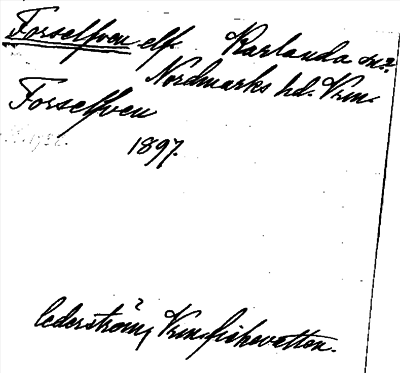 Forselfven elf. Karlanda sn.
Nordmarks hd. Vrml.
Forselfven
1897.
Cederström, Vrml. fiskevatten.